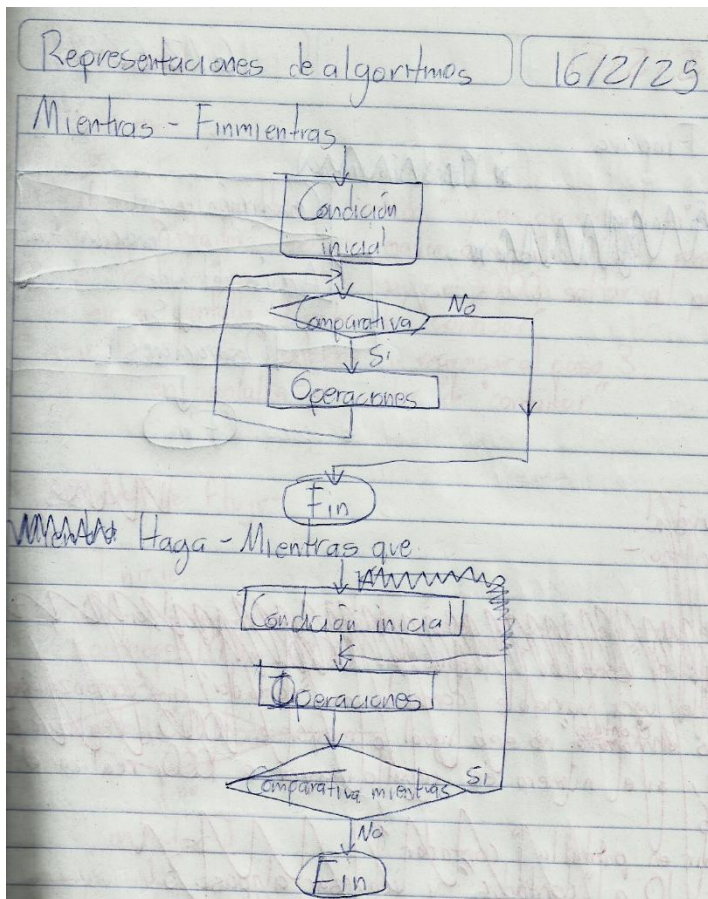 Representaciones de algoritmos 16/2/25
Mientras - Finmientras
Condición
inicial
Comparativa No
Si
Operaciones
Fin
Haga - Mientras que
Condición inicial
Operaciones
Comparativa mientras Si
No
Fin